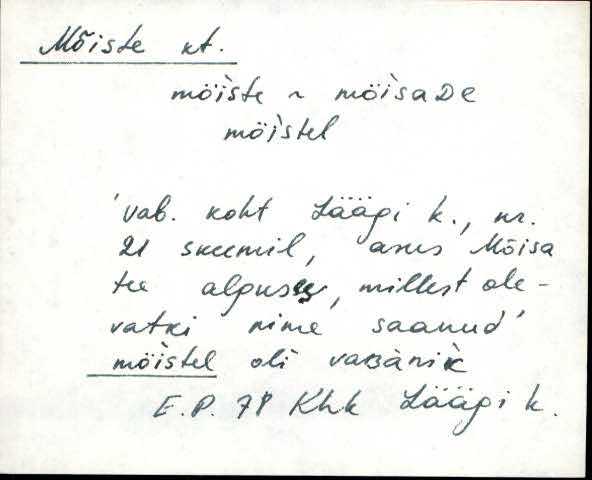 Mõiste kt.
möìste ~ möìsaDe
möìstel
'vab. koht Läägi k., nr.
21 skeemil, asus Mõisa
tee alguses, millest ole-
vatki nime saanud'
möìstel oli vaBànìk
E.P. 78 Khk Läägi k.